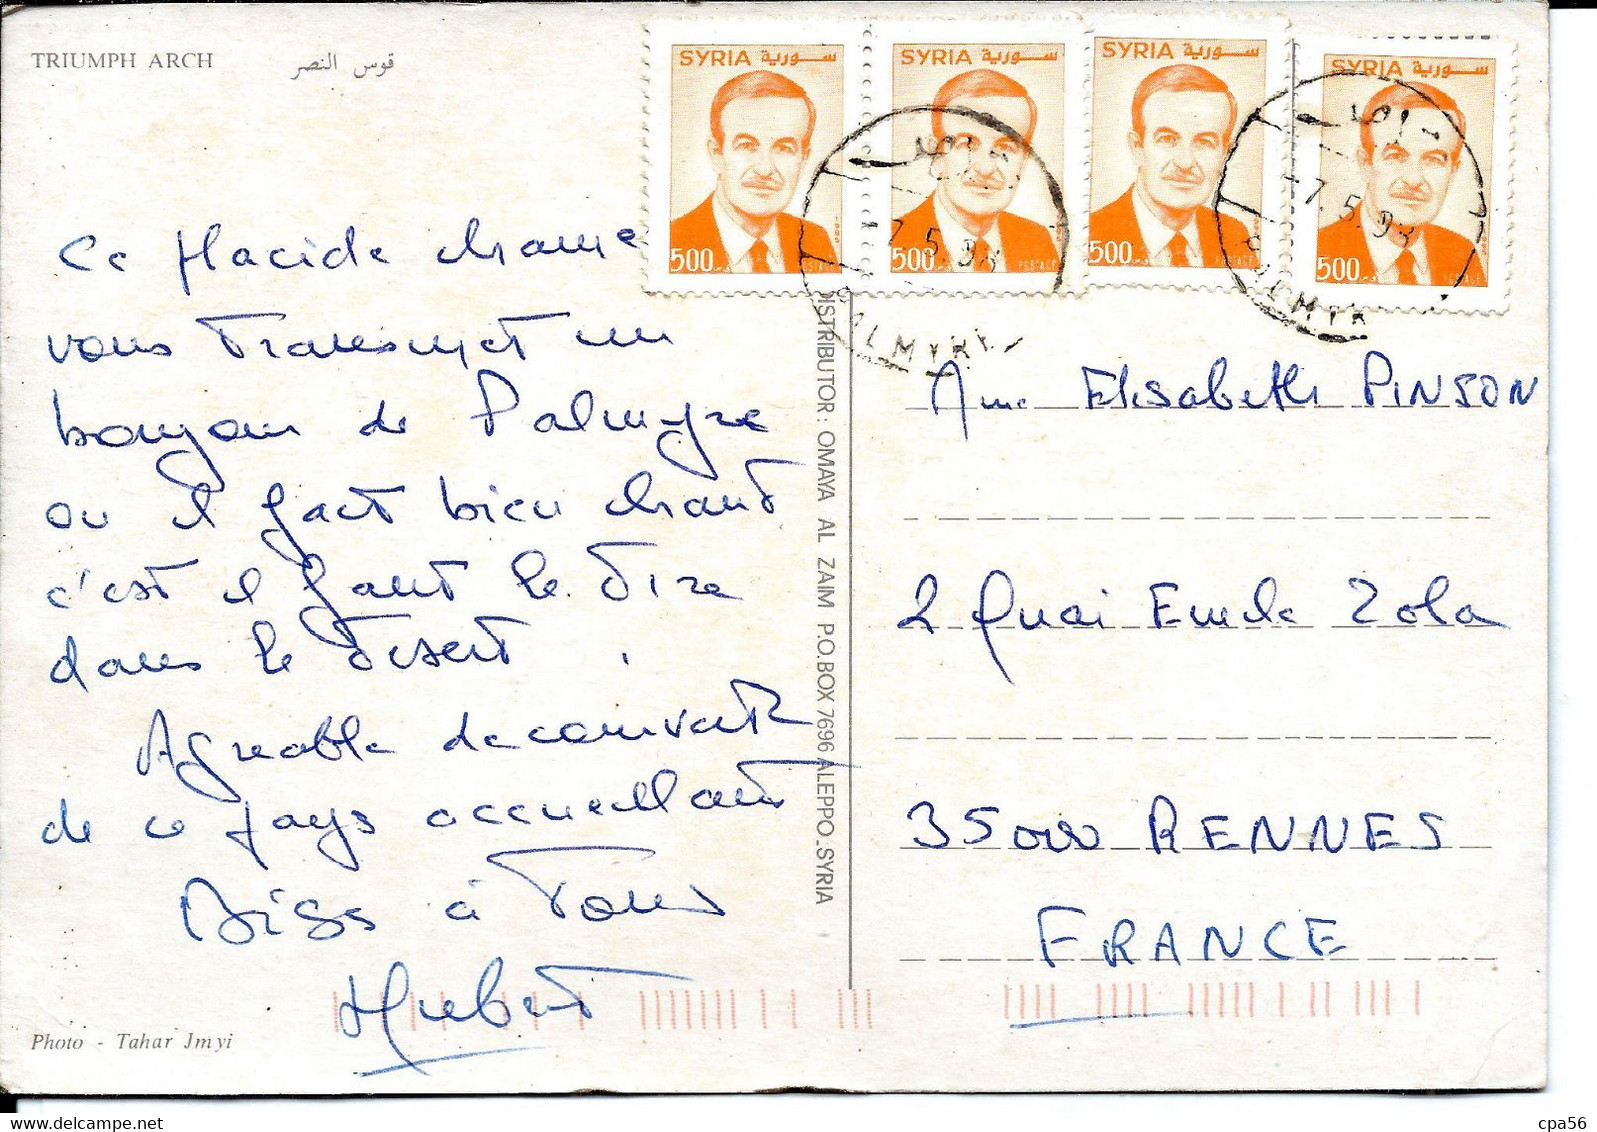 TRIUMPH ARCH
قوس النصر
SYRIA سورية
500
SYRIA سورية
500
POSTAGE
SYRIA سورية
500
SYRIA سورية
500
POSTAGE
7.5.93
PALMYRA
7.5.93
PALMYRA
Ce placide chameau
vous transmet un
bonjour de Palmyre
ou il fait bien chaud
c'est il faut le dire
dans le désert.
Agreable decouverte
de ce pays accueillant
Bises à Tous
Hubert
Mme Elisabeth PINSON
2 Quai Emile Zola
35000 RENNES
FRANCE
DISTRIBUTOR : OMAYA AL ZAIM P.O.BOX 7696 ALEPPO_SYRIA
Photo - Tahar Jmyi
cpa56